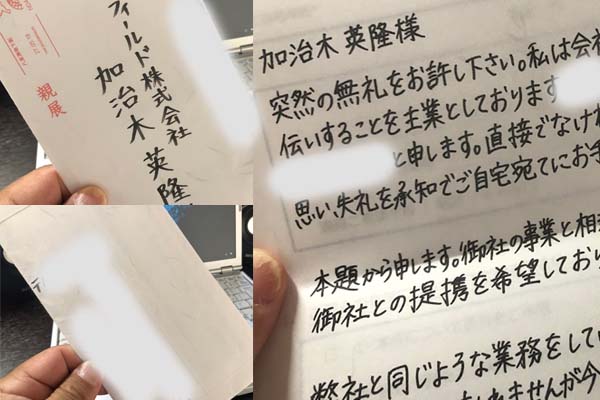 親展
フィールド株式会社
加治木 英隆
加治木 英隆様
突然の無礼をお許し下さい。私は会社
伝いすることを主業としております
と申します。直接でなけれ
思い、失礼を承知でご自宅宛てにお手
本題から申します。御社の事業と相
御社との提携を希望しており
弊社と同じような業務をしてい
ませんが今